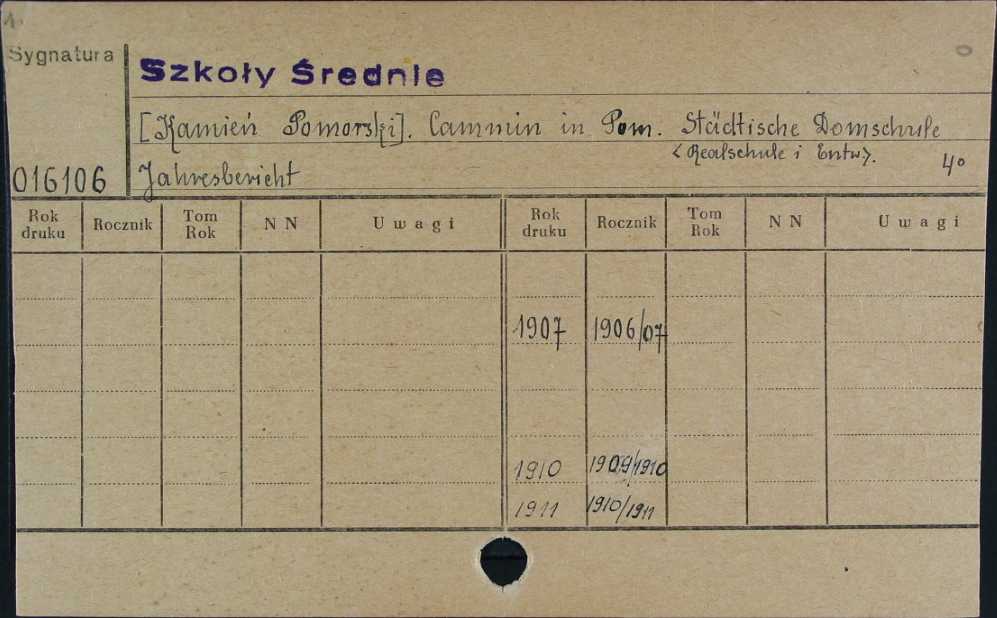 1.
Sygnatura
Szkoły Średnie
0
[Kamień Pomorski]. Cammin in Pom. Städtische Domschule
<Realschule i Entw>.
4°
016106
Jahresbericht
Rok druku Rocznik Tom Rok NN Uwagi Rok druku Rocznik Tom Rok NN Uwagi
1907 1906/07
1910 1909/1910
1911 1910/1911